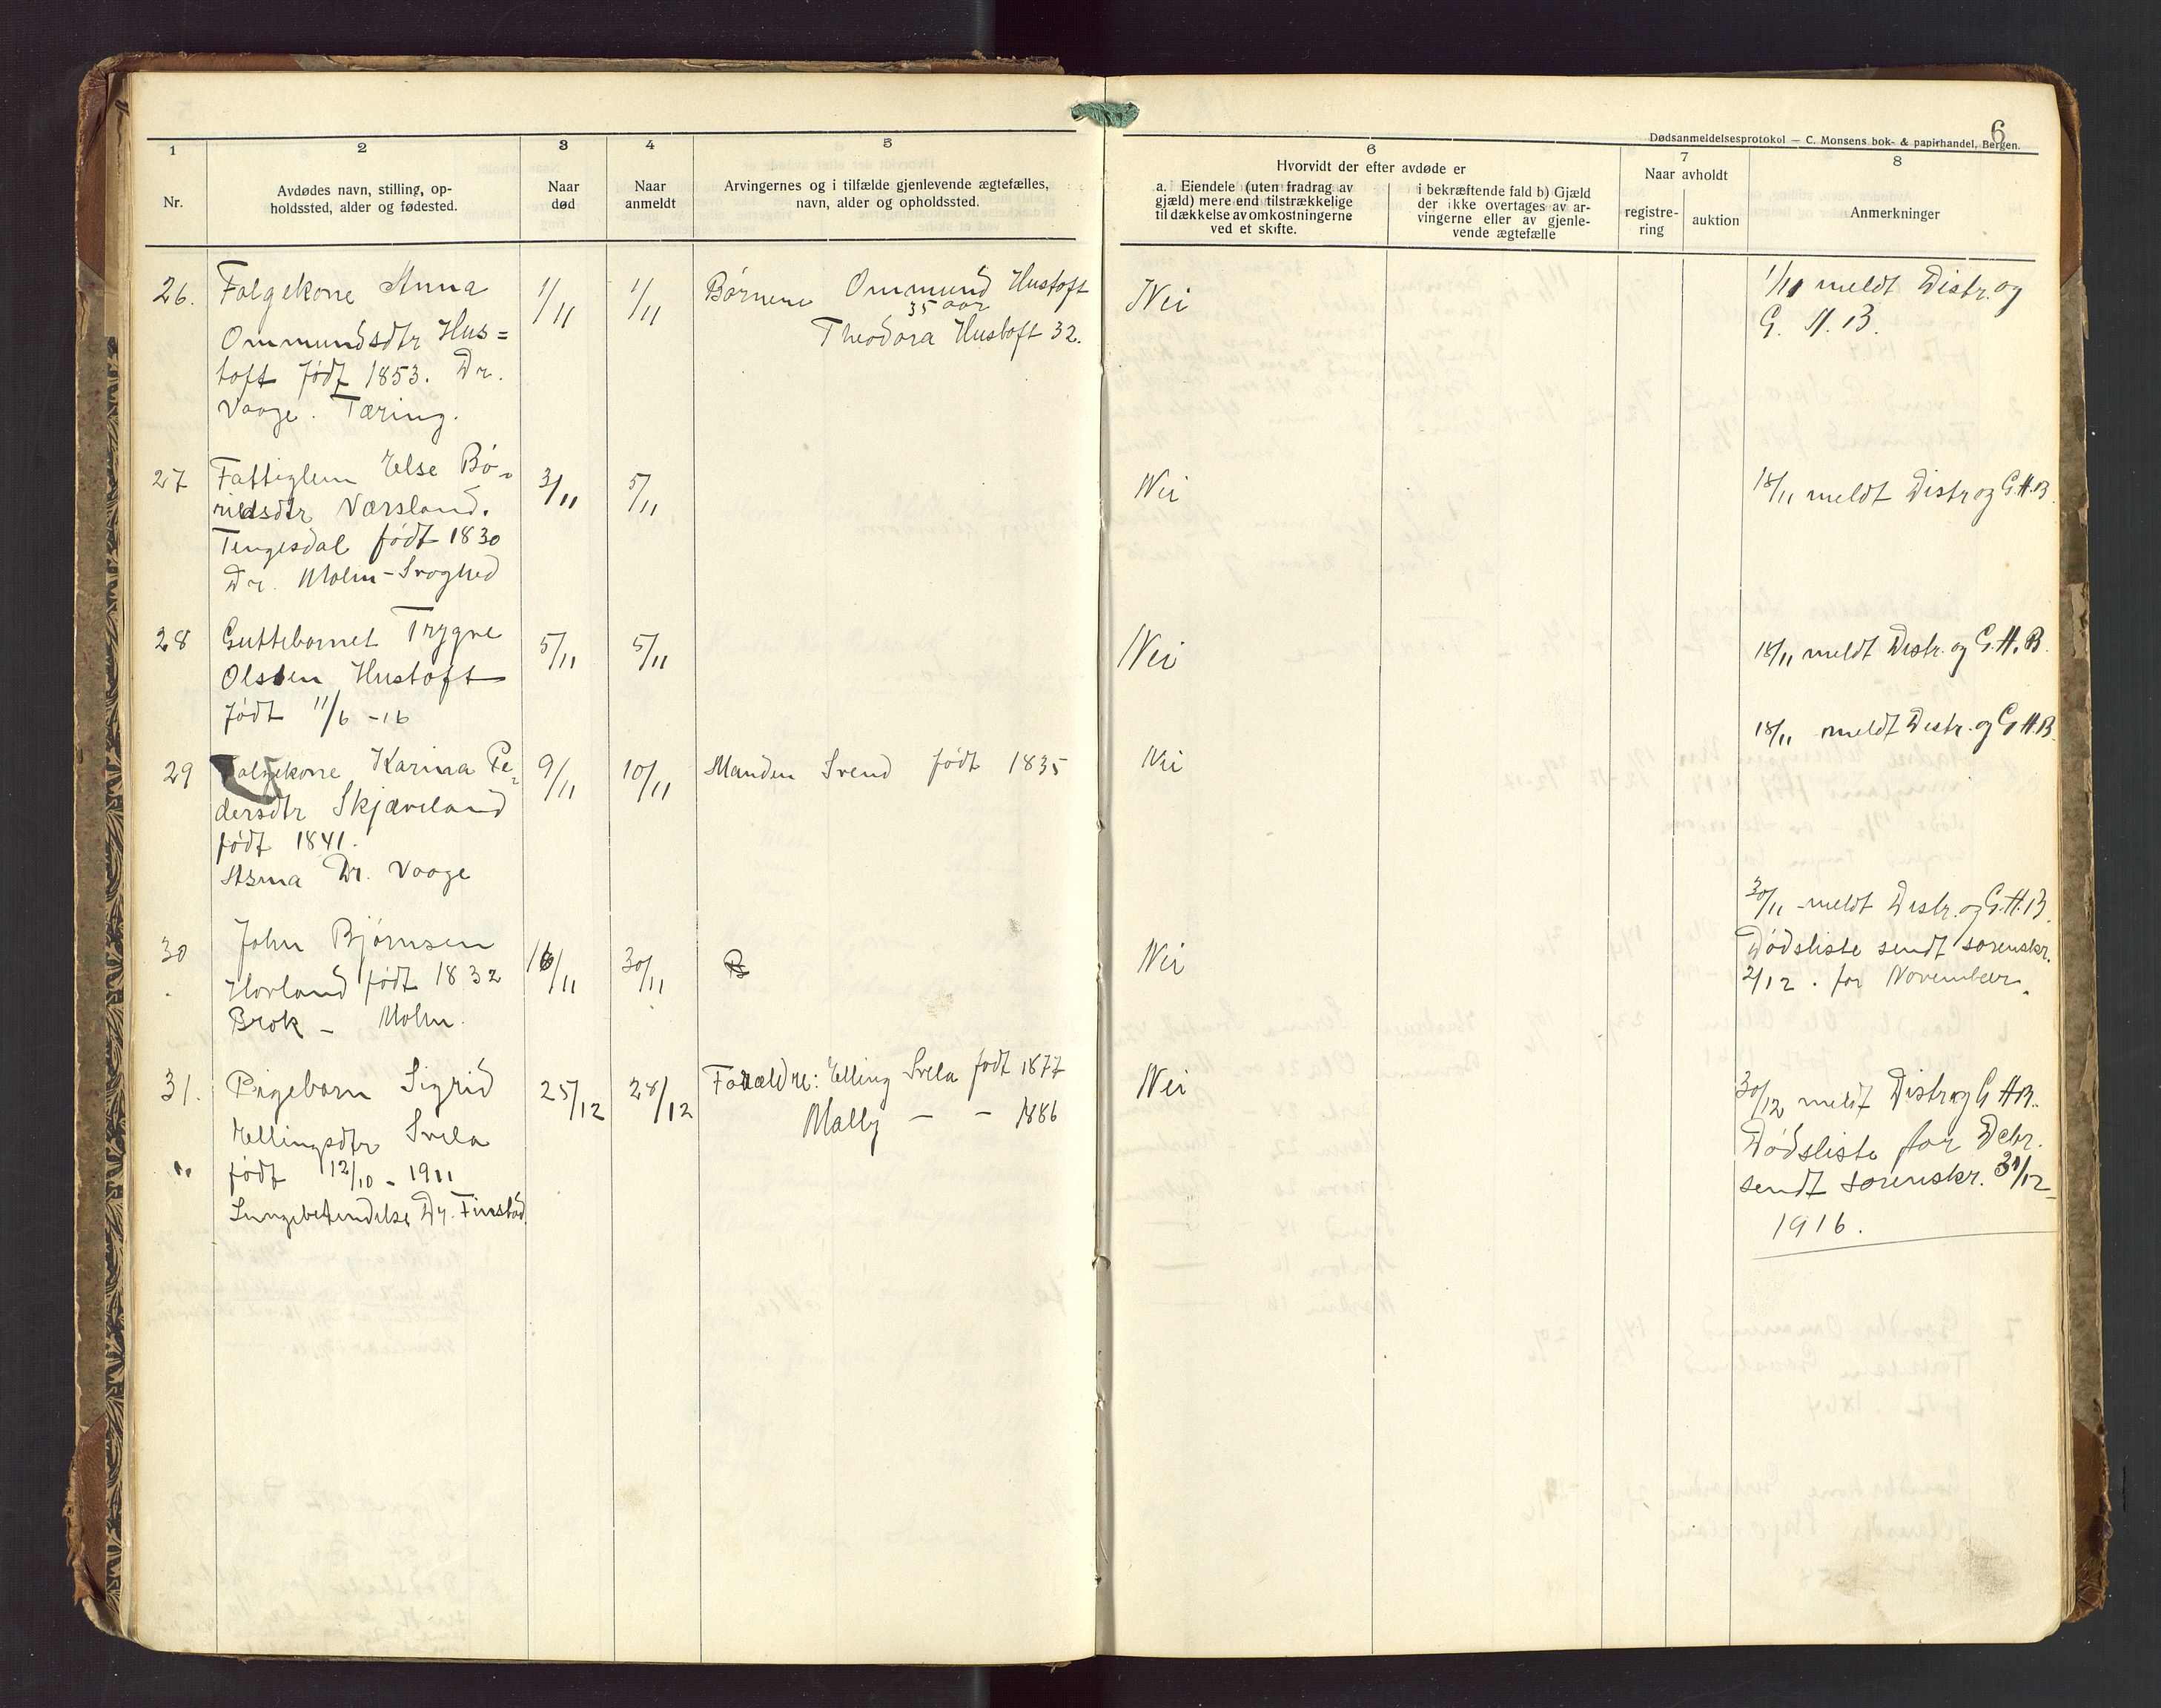 6
Dødsanmeldelsesprotokol — C. Monsens bok- & papirhandel, Bergen.
1
2
3
4
5
6
7
8
Nr.
Avdødes navn, stilling, op-
holdssted, alder og fødested.
Naar
død
Naar
anmeldt
Arvingernes og i tilfælde gjenlevende ægtefælles,
navn, alder og opholdssted.
Hvorvidt der efter avdøde er
a. Eiendele (uten fradrag av
gjæld) mere end tilstrækkelige
til dækkelse av omkostningerne
ved et skifte.
i bekræftende fald b) Gjæld
der ikke overtages av ar-
vingerne eller av gjenle-
vende ægtefælle
Naar avholdt
registre-
ring
auktion
Anmerkninger
26.
Folgekone Anna
Ommundsdtr Hus=
toft født 1853. Dr.
Vaage. Tæring.
1/11
1/11
Børnene Ommund Hustoft
35 aar
Theodora Hustoft 32.
Nei
1/11 meldt Distr. og
G. H. B.
27
Fattiglem Else Bå-
rdsdtr Værsland.
Tengesdal født 1830
Dr. Molm - Svaghed
3/11
5/11
Nei
18/11 meldt Distr og G.H.B.
28
Guttebarnet Trygve
Olsen Hustoft
født 11/6 -16
5/11
5/11
Nei
18/11 meldt Distr. og G.H.B.
29
Folgekone Karina Pe-
dersdtr Skjæveland
født 1841.
Asma Dr. Vaage
9/11
10/11
Manden Svend født 1835
Nei
18/11 meldt Distr. og G.H.B.
30
John Bjørnsen
Hovland født 1832
Brok - Molm.
16/11
30/11
Nei
30/11 - meldt Distr. og G.H.B.
Dødsliste sendt sorenskr.
2/12. for November.
31.
Pigebarn Sigrid
Ellingsdtr Svela
født 12/10 - 1911
Lungebetændelse Dr. Finstad.
25/12
28/12
Forældre: Elling Svela født 1877
Mally — — 1886
Nei
30/12 meldt Distr og G.H.B.
Dødsliste for Debr.
sendt sorenskr. 31/12
1916.